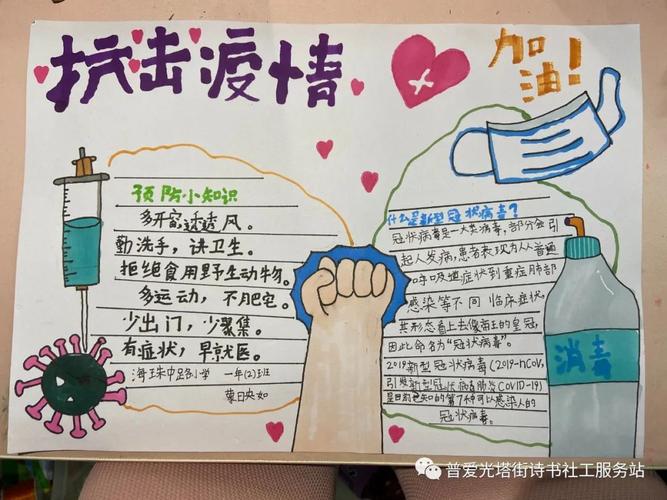 抗击疫情
加油!
预防小知识
多开窗,透透风。
勤洗手,讲卫生。
拒绝食用野生动物。
多运动,不肥宅。
少出门,少聚集。
有症状,早就医。
海珠中路小学 一年(2)班
什么是新型冠状病毒?
冠状病毒是一大类病毒,部分会引
起人发病,患者表现为从普通
呼吸道症状到重症肺部
感染等不同临床症状,
其形态看上去像帝王的皇冠,
因此命名为“冠状病毒”。
2019新型冠状病毒(2019-nCoV,
引发新型冠状病毒肺炎COVID-19)
是目前已知的第7种可以感染人的
冠状病毒。
消毒
普爱光塔街诗书社工服务站